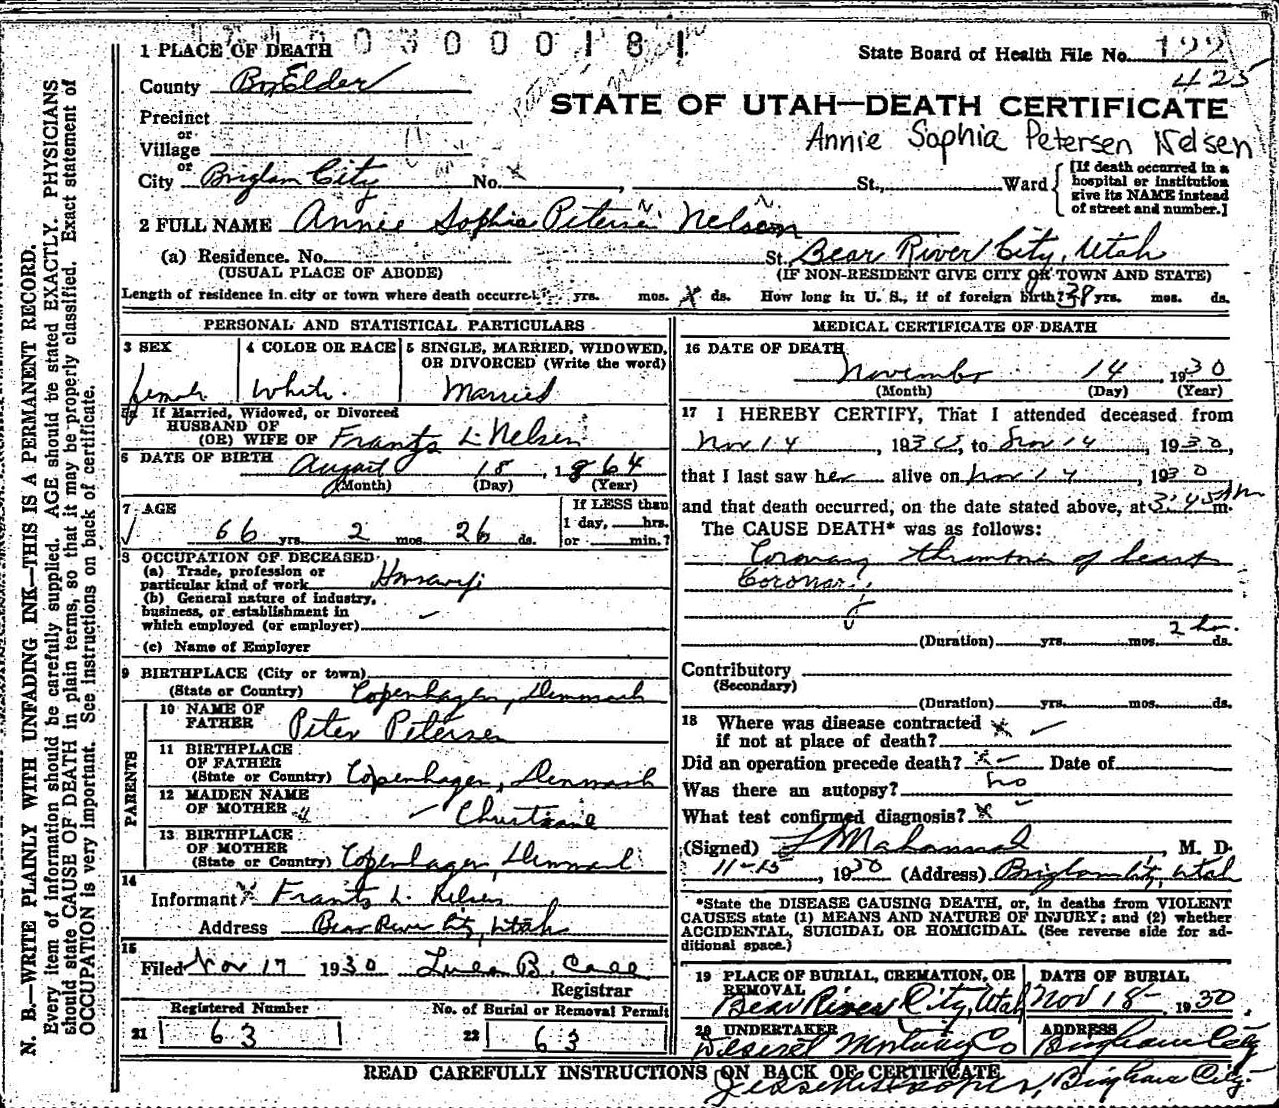 0 3 0 0 0 1 8 1
1 PLACE OF DEATH
State Board of Health File No. 122
425
County Box Elder
STATE OF UTAH—DEATH CERTIFICATE
Precinct
or
Village
Annie Sophia Petersen Nelsen
or
City Brigham City No. x , St., Ward
[If death occurred in a
hospital or institution
give its NAME instead
of street and number.]
2 FULL NAME Annie Sophia Petersen Nelson
(a) Residence. No. St. Bear River City, Utah
(USUAL PLACE OF ABODE) (IF NON-RESIDENT GIVE CITY OR TOWN AND STATE)
Length of residence in city or town where death occurred yrs. mos. x ds. How long in U. S., if of foreign birth? 38 yrs. mos. ds.
PERSONAL AND STATISTICAL PARTICULARS
3 SEX 4 COLOR OR RACE 5 SINGLE, MARRIED, WIDOWED,
OR DIVORCED (Write the word)
female White Married
If Married, Widowed, or Divorced
HUSBAND OF
(OR) WIFE OF Frants L. Nelsen
6 DATE OF BIRTH August 18, 1864
(Month) (Day) (Year)
7 AGE If LESS than
1 day, hrs.
66 yrs. 2 mos. 26 ds. or min.?
8 OCCUPATION OF DECEASED
(a) Trade, profession or
particular kind of work Housewife
(b) General nature of industry,
business, or establishment in
which employed (or employer)
(c) Name of Employer
9 BIRTHPLACE (City or town)
(State or Country) Copenhagen, Denmark
PARENTS
10 NAME OF
FATHER Peter Petersen
11 BIRTHPLACE
OF FATHER
(State or Country) Copenhagen, Denmark
12 MAIDEN NAME
OF MOTHER Christiane
13 BIRTHPLACE
OF MOTHER
(State or Country) Copenhagen, Denmark
14
Informant x Frants L. Nelsen
Address Bear River City, Utah
15
Filed Nov 17 1930
Registrar
Registered Number No. of Burial or Removal Permit
21 63 22 63
MEDICAL CERTIFICATE OF DEATH
16 DATE OF DEATH
November 14, 1930
(Month) (Day) (Year)
17 I HEREBY CERTIFY, That I attended deceased from
Nov 14, 1930, to Nov 14, 1930,
that I last saw her alive on Nov 14, 1930
and that death occurred, on the date stated above, at 3:45 AM m.
The CAUSE DEATH* was as follows:
Coronary thrombosis of heart
Coronary
2 hr.
(Duration) yrs. mos. ds.
Contributory
(Secondary)
(Duration) yrs. mos. ds.
18 Where was disease contracted
if not at place of death? x
Did an operation precede death? x Date of
Was there an autopsy? no
What test confirmed diagnosis? x
(Signed) , M. D.
11-15, 1930 (Address) Brigham City, Utah
*State the DISEASE CAUSING DEATH, or, in deaths from VIOLENT
CAUSES state (1) MEANS AND NATURE OF INJURY; and (2) whether
ACCIDENTAL, SUICIDAL OR HOMICIDAL. (See reverse side for ad-
ditional space.)
19 PLACE OF BURIAL, CREMATION, OR DATE OF BURIAL
REMOVAL
Bear River City, Utah Nov 18 1930
20 UNDERTAKER ADDRESS
Deseret Mortuary Co Brigham City
Brigham City
READ CAREFULLY INSTRUCTIONS ON BACK OF CERTIFICATE
N. B.—WRITE PLAINLY WITH UNFADING INK—THIS IS A PERMANENT RECORD.
Every item of information should be carefully supplied. AGE should be stated EXACTLY. PHYSICIANS
should state CAUSE OF DEATH in plain terms, so that it may be properly classified. Exact statement of
OCCUPATION is very important. See instructions on back of certificate.